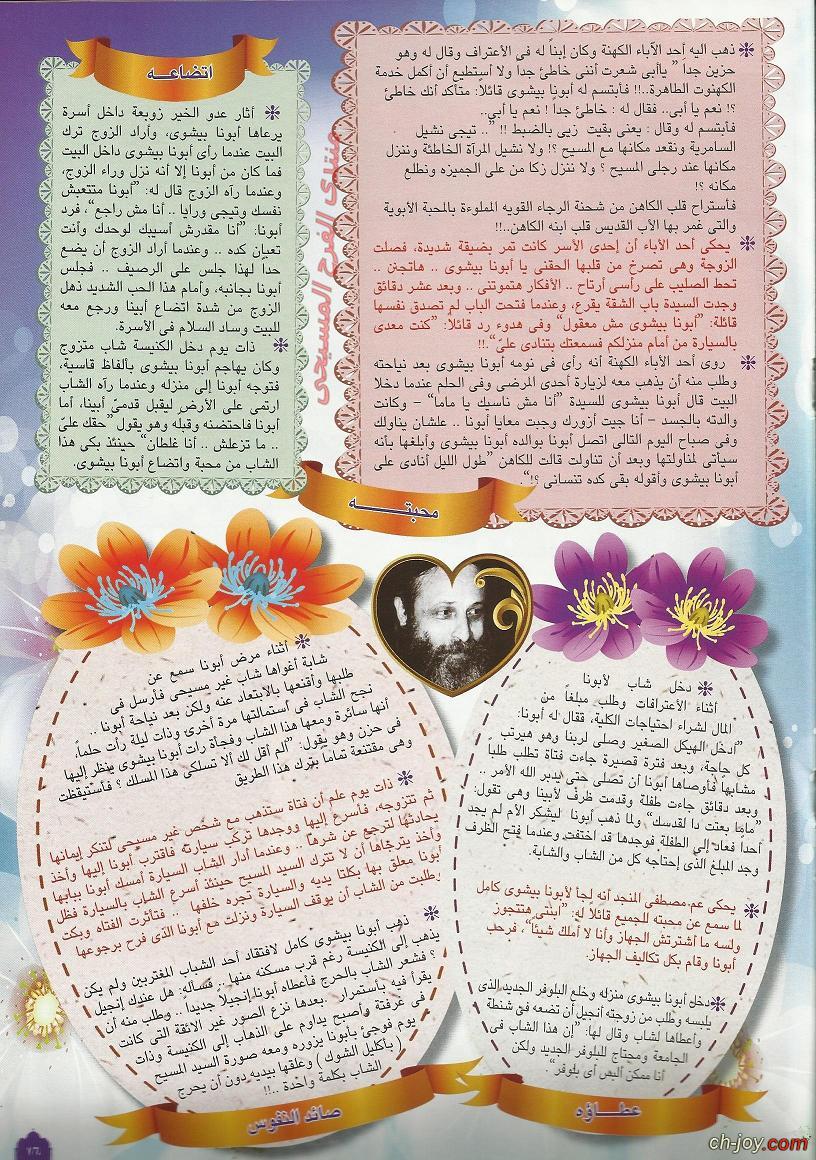 ذهب اليه أحد الآباء الكهنة وكان إبناً له فى الأعتراف وقال له وهو
حزين جداً " ياأبى شعرت أننى خاطئ جداً ولا أستطيع أن أكمل خدمة
الكهنوت الطاهرة..!! فأبتسم له أبونا بيشوى قائلا: متأكد أنك خاطئ
؟! نعم يا أبى.. فقال له : خاطئ جداً ! نعم يا أبى..
فأبتسم له وقال : يعنى بقيت زيى بالضبط !! ".. تيجى نشيل
السامرية ونقعد مكانها مع المسيح ؟! ولا نشيل المرآة الخاطئة وننزل
مكانها عند رجلى المسيح ؟ ولا ننزل زكا من على الجميزه ونطلع
مكانه ؟!
فأستراح قلب الكاهن من شحنة الرجاء القويه المملوءة بالمحبة الأبوية
والتى غمر بها الأب القديس قلب ابنه الكاهن..!!
يحكى أحد الأباء أن إحدى الأسر كانت تمر بضيقة شديدة، فصلت
الزوجة وهى تصرخ من قلبها الحقنى يا أبونا بيشوى .. هاتجنن ..
تحط الصليب على رأسى أرتاح .. الأفكار هتموتنى .. وبعد عشر دقائق
وجدت السيدة باب الشقة يقرع، وعندما فتحت الباب لم تصدق نفسها
قائلة: "أبونا بيشوى مش معقول" وفى هدوء رد قائلاً: "كنت معدى
بالسيارة من أمام منزلكم فسمعتك بتنادى علىّ".!!
روى أحد الأباء الكهنة أنه رأى فى نومه أبونا بيشوى بعد نياحته
وطلب منه أن يذهب معه لزيارة أحدى المرضى وفى الحلم عندما دخلا
البيت قال أبونا بيشوى للسيدة "أنا مش ناسيك يا ماما" – وكانت
والدته بالجسد – أنا جيت أزورك وجبت معايا أبونا .. علشان يناولك
وفى صباح اليوم التالى اتصل أبونا بوالده أبونا بيشوى وأبلغها بأنه
سيأتى لمناولتها وبعد أن تناولت قالت للكاهن "طول الليل أنادى على
أبونا بيشوى وأقوله بقى كده تنسانى ؟!".
محبتـــــه
اتضاعــه
أثار عدو الخير زوبعة داخل أسرة
يرعاها أبونا بيشوى، وأراد الزوج ترك
البيت عندما رأى أبونا بيشوى داخل البيت
فما كان من أبونا إلا أنه نزل وراء الزوج،
وعندما رآه الزوج قال له: "أبونا متتعبش
نفسك وتيجى ورايا .. أنا مش راجع"، فرد
أبونا: "أنا مقدرش أسيبك لوحدك وأنت
تعبان كده .. وعندما أراد الزوج أن يضع
حداً لهذا جلس على الرصيف .. فجلس
أبونا بجانبه، وأمام هذا الحب الشديد ذهل
الزوج من شدة اتضاع أبينا ورجع معه
للبيت وساد السلام فى الأسرة.
ذات يوم دخل الكنيسة شاب متزوج
وكان يهاجم أبونا بيشوى بألفاظ قاسية،
فتوجه أبونا إلى منزله وعندما رآه الشاب
ارتمى على الأرض ليقبل قدمىّ أبينا، أما
أبونا فاحتضنه وقبله وهو يقول "حقك علىّ
.. ما تزعلش .. أنا غلطان" حينئذ بكى هذا
الشاب من محبة واتضاع أبونا بيشوى.
منتدى الفرح المسيحى
دخل شاب لأبونا
أثناء الأعترافات وطلب مبلغاً من
المال لشراء احتياجات الكلية، فقال له أبونا:
"أدخل الهيكل الصغير وصلى لربنا وهو هيرتب
كل حاجة، وبعد فترة قصيرة جاءت فتاة تطلب طلباً
مشابهاً فأوصاها أبونا أن تصلى حتى يدبر الله الأمر ..
وبعد دقائق جاءت طفلة وقدمت ظرف لأبينا وهى تقول:
"ماما بعتت دا لقدسك" ولما ذهب أبونا ليشكر الأم لم يجد
أحداً فعاد إلى الطفلة فوجدها قد اختفت وعندما فتح الظرف
وجد المبلغ الذى إحتاجه كل من الشاب والشابة.
يحكى عم مصطفى المنجد أنه لجأ لأبونا بيشوى كامل
لما سمع عن محبته للجميع قائلا له: "أبنتى هتتجوز
ولسه ما أشترتش الجهاز وأنا لا أملك شيئاً"، فرحب
أبونا وقام بكل تكاليف الجهاز.
دخل أبونا بيشوى منزله وخلع البلوفر الجديد الذى
يلبسه وطلب من زوجته أنجيل أن تضعه فى شنطة
وأعطاها لشاب وقال لها: "إن هذا الشاب فى
الجامعة ومحتاج للبلوفر الجديد ولكن
أنا ممكن ألبس أى بلوفر"
عطــاؤه
أثناء مرض أبونا سمع عن
شابة أغواها شاب غير مسيحى فأرسل فى
طلبها وأقنعها بالابتعاد عنه ولكن بعد نياحة أبونا ..
نجح الشاب فى استمالتها مرة أخرى وذات ليلة رأت حلماً،
أنها سائرة ومعها هذا الشاب وفجأة رأت أبونا بيشوى ينظر إليها
فى حزن وهو يقول: "ألم أقل لك ألا تسلكى هذا المسلك ؟ فأستيقظت
وهى مقتنعة تماما بترك هذا الطريق
ذات يوم علم أن فتاة ستذهب مع شخص غير مسيحى لتنكر إيمانها
ثم تتزوجه، فأسرع إليها ووجدها تركب سيارته فاقترب أبونا إليها وأخذ
يحادثها لترجع عن شرها .. وعندما أدار الشاب السيارة أمسك أبونا ببابها
وأخذ يترجاها أن لا تترك السيد المسيح حينئذ أسرع الشاب بالسيارة فظل
أبونا معلق بها بكلتا يديه والسيارة تجره خلفها .. فتأثرت الفتاه وبكت
وطلبت من الشاب أن يوقف السيارة ونزلت مع أبونا الذى فرح برجوعها
ذهب أبونا بيشوى كامل لافتقاد أحد الشباب المغتربين ولم يكن
يذهب إلى الكنيسة رغم قرب مسكنه منها .. فسأله: هل عندك إنجيل
؟ فشعر الشاب بالحرج فأعطاه أبونا إنجيلاً جديداً .. وطلب منه أن
يقرأ فيه بأستمرار . بعدها نزع الصور غير الائقة التى كانت
فى غرفتة وأصبح يداوم على الذهاب إلى الكنيسة وذات
يوم فوجئ بأبونا بزوره ومعه صورة السيد المسيح
( باكليل الشوك ) وعلقها بيديه دون أن يحرج
الشاب بكلمة واحدة ..!!
صائد النفوس
٧٦
ch-joy.com